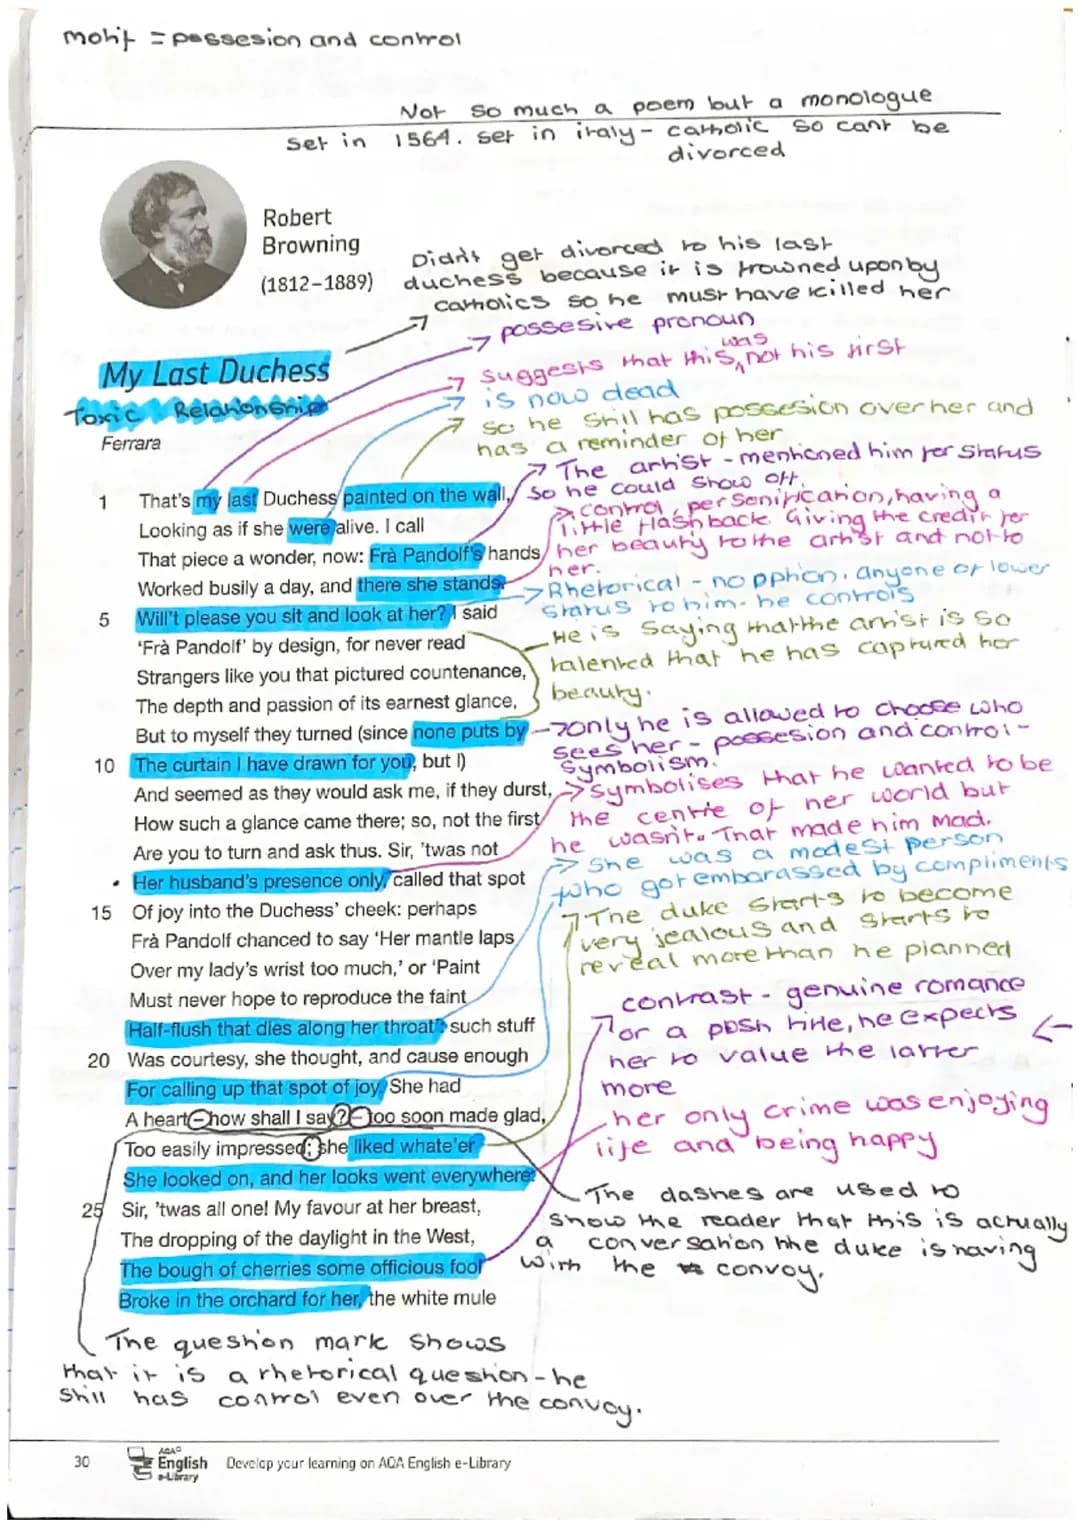 motif = possesion and control
Not so much a poem but a monologue
Set in 1564. set in italy - catholic so cant be
divorced
Robert
Browning
(1812–1889)
Didn't get divorced to his last
duchess because it is frowned upon by
catholics so he must have killed her
possesive pronoun
My Last Duchess
Suggests that this was not his first
is now dead
Toxic Relationship
so he still has possesion over her and
has a reminder of her
Ferrara
The artist - mentioned him for status
so he could show off.
1 That's my last Duchess painted on the wall,
control, personification, having a
Looking as if she were alive. I call
little flashback. Giving the credit for
That piece a wonder, now: Frà Pandolf's hands
her beauty to the artist and not to
her.
Worked busily a day, and there she stands.
Rhetorical - no option. anyone of lower
status to him - he controls
5 Will't please you sit and look at her? I said
He is saying that the artist is so
'Frà Pandolf' by design, for never read
talented that he has captured her
Strangers like you that pictured countenance,
beauty.
The depth and passion of its earnest glance,
But to myself they turned (since none puts by
only he is allowed to choose who
sees her - possesion and control -
symbolism.
10 The curtain I have drawn for you, but I)
And seemed as they would ask me, if they durst,
symbolises that he wanted to be
How such a glance came there; so, not the first
the centre of her world but
Are you to turn and ask thus. Sir, 'twas not
he wasn't. That made him mad.
She was a modest person
Her husband's presence only, called that spot
who got embarassed by compliments
15 Of joy into the Duchess' cheek: perhaps
The duke starts to become
Frà Pandolf chanced to say 'Her mantle laps
very jealous and starts to
Over my lady's wrist too much,' or 'Paint
reveal more than he planned
Must never hope to reproduce the faint
contrast - genuine romance
Half-flush that dies along her throat': such stuff
or a posh title, he expects
20 Was courtesy, she thought, and cause enough
her to value the latter
For calling up that spot of joy. She had
more
A heart – how shall I say? – too soon made glad,
her only crime was enjoying
Too easily impressed; she liked whate'er
life and being happy
She looked on, and her looks went everywhere.
The dashes are used to
25 Sir, 'twas all one! My favour at her breast,
show the reader that this is actually
The dropping of the daylight in the West,
a conversation the duke is having
The bough of cherries some officious fool
with the convoy.
Broke in the orchard for her, the white mule
The question mark shows
that it is a rhetorical question - he
still has control even over the convoy.
30
AQA
English
e-Library
Develop your learning on AQA English e-Library